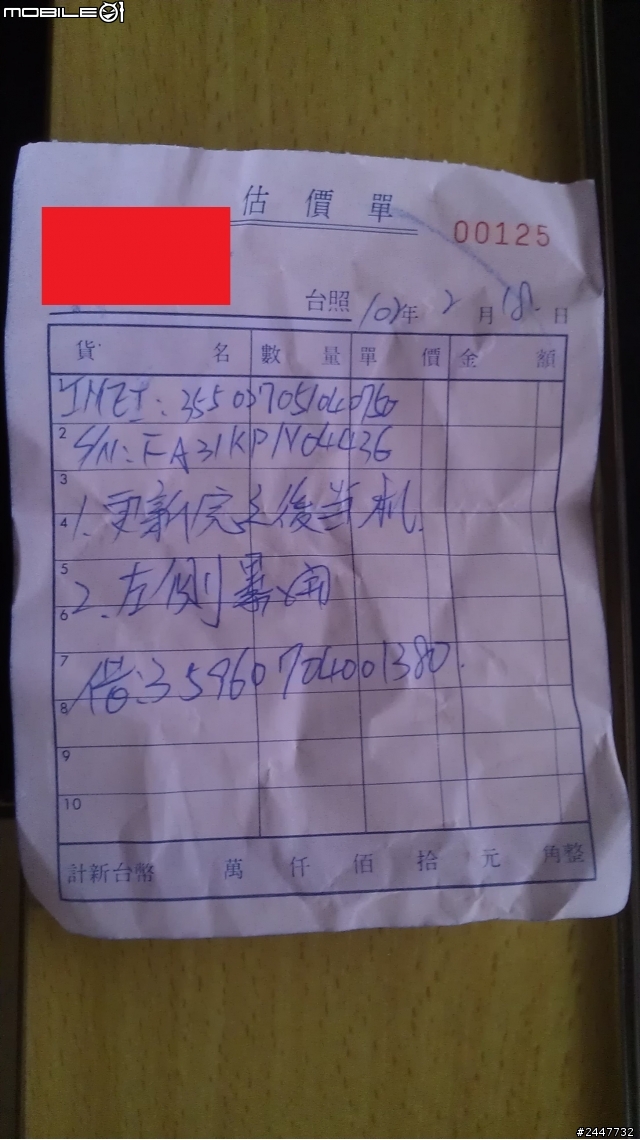 MOBILE01
估價單
00125
台照 102年 2月 18日
貨名 數量 單價 金額
IMEI:355037051040750
2 S/N:FA31KPN04436
3
1.更新完之後當机.
4
5
2.左側
6
7
借:35960704001380.
8
9
10
計新台幣 萬 仟 佰 拾 元 角整
#2447732